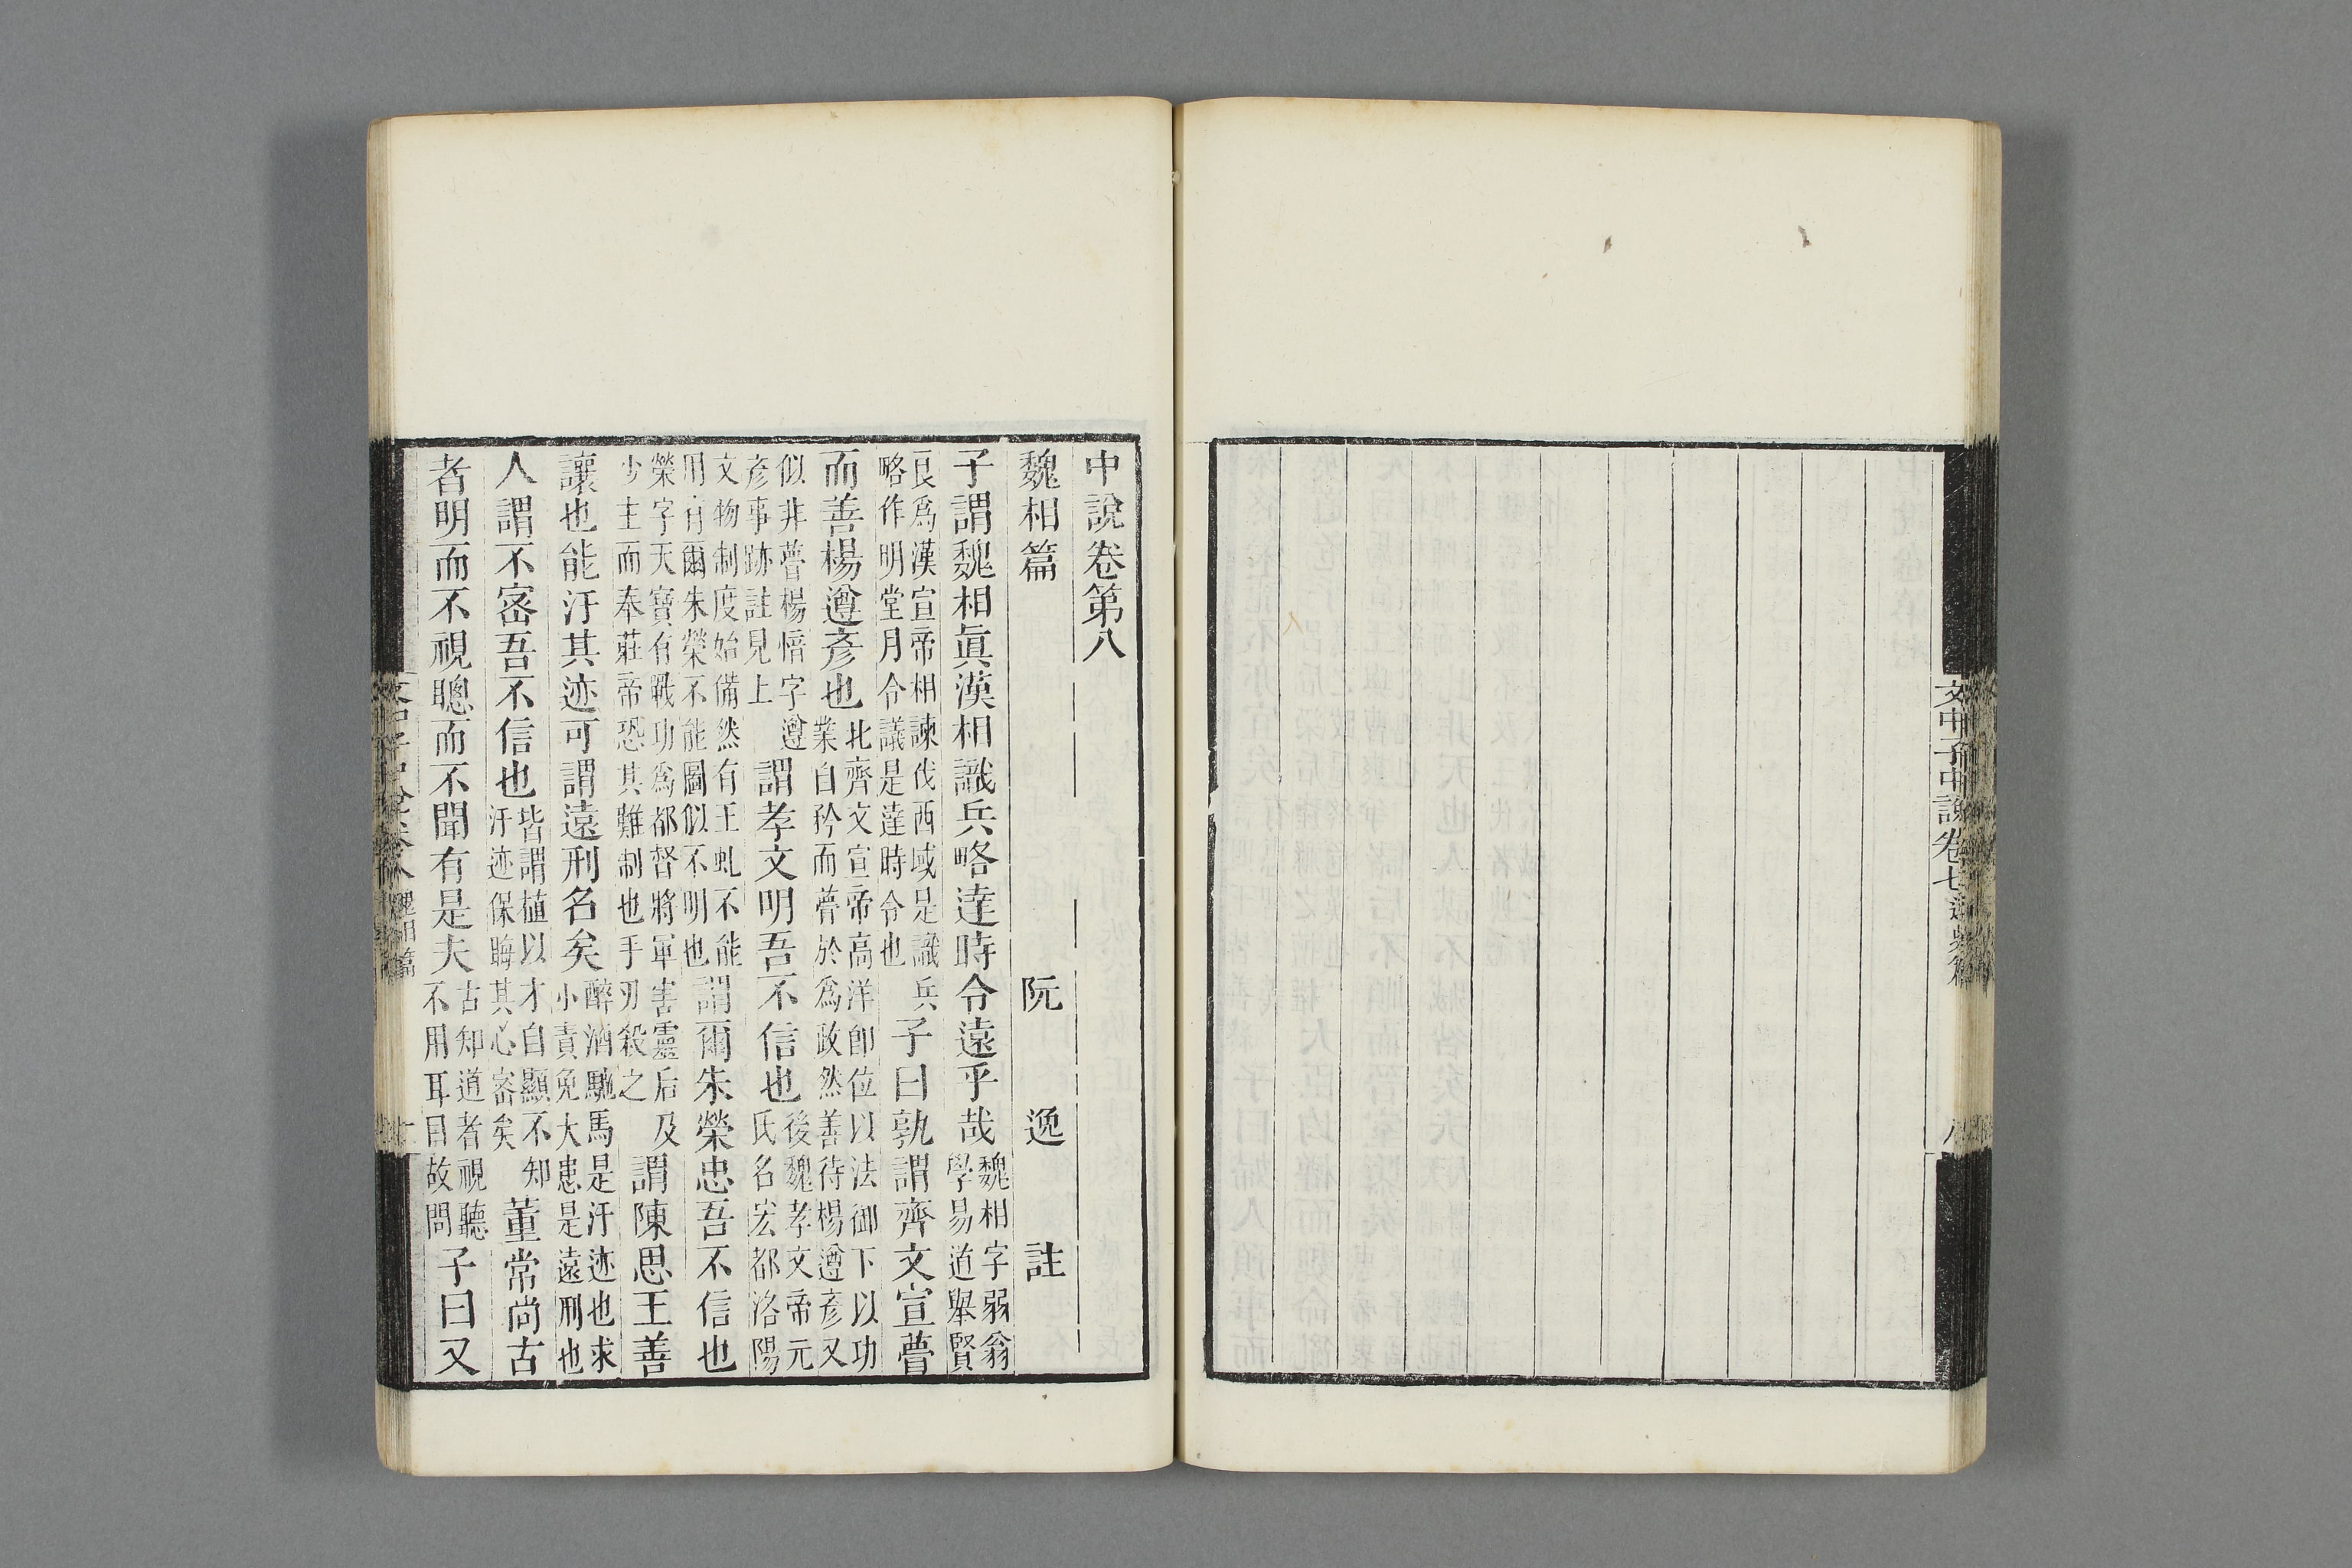 文中子中說卷七 述史篇 八
中說卷第八
魏相篇 阮 逸 註
子謂魏相眞漢相識兵略達時令遠乎哉魏相字弱翁學易道舉賢
良爲漢宣帝相諫伐西域是識兵略作明堂月令議是達時令也子曰孰謂齊文宣瞢
而善楊遵彥也北齊文宣帝高洋卽位以法御下以功業自矜而瞢於爲政然善待楊遵彥又
似非瞢楊愔字遵彥事跡註見上謂孝文明吾不信也後魏孝文帝元氏名宏都洛陽
文物制度始備然有王虬不能用有爾朱榮不能圖似不明也謂爾朱榮忠吾不信也
榮字天寶有戰功爲都督將軍害靈后及少主而奉莊帝恐其難制也手刃殺之謂陳思王善
讓也能汙其迹可謂遠刑名矣醉酒馳馬是汙迹也求小責免大患是遠刑也
人謂不密吾不信也皆謂植以才自顯不知汙迹保晦其心密矣董常尚古
者明而不視聰而不聞有是夫古知道者視聽不用耳目故問子曰又
文中子中說卷八 魏相篇